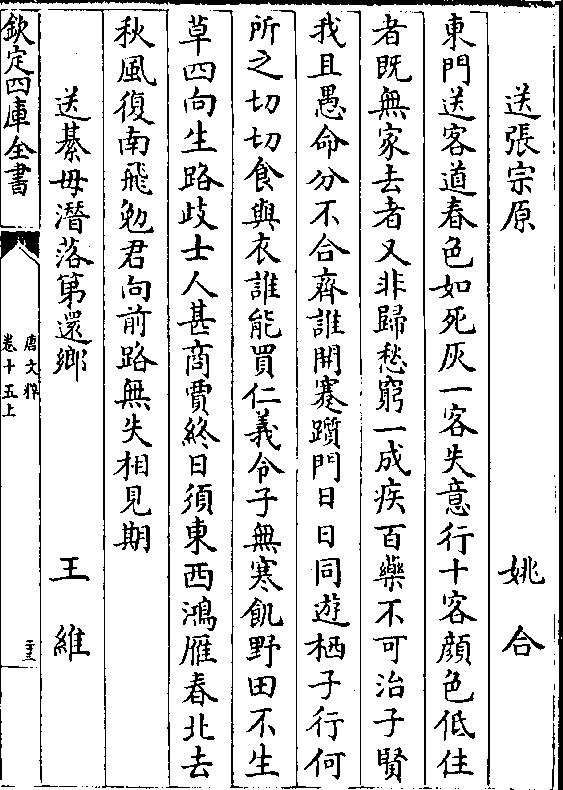 送張宗原 姚合
東門送客道春色如死灰一客失意行十客顔色低住
者既無家去者又非歸愁窮一成疾百藥不可治子賢
我且愚命分不合齊誰開蹇躓門日日同遊栖子行何
所之切切食與衣誰能買仁義令子無寒飢野田不生
草四向生路歧士人甚商賈終日須東西鴻雁春北去
秋風復南飛勉君向前路無失相見期
送綦毋潛落第還鄉 王維
欽定四庫全書
唐文粹
卷十五上
二十三